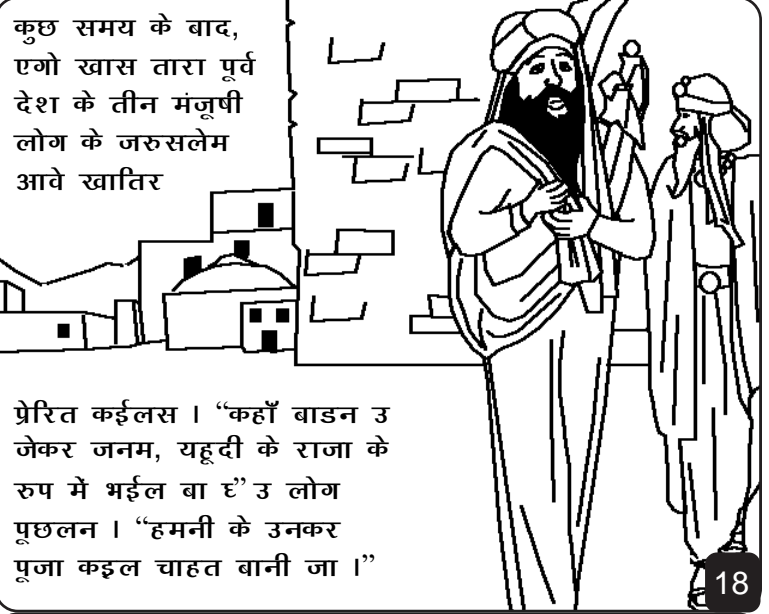 कुछ समय के बाद,
एगो खास तारा पूर्व
देश के तीन मंजूषी
लोग के जरुसलेम
आवे खातिर
प्रेरित कईलस । “कहाँ बाडन उ
जेकर जनम, यहूदी के राजा के
रुप में भईल बा घ्” उ लोग
पूछलन । “हमनी के उनकर
पूजा कइल चाहत बानी जा ।”
18